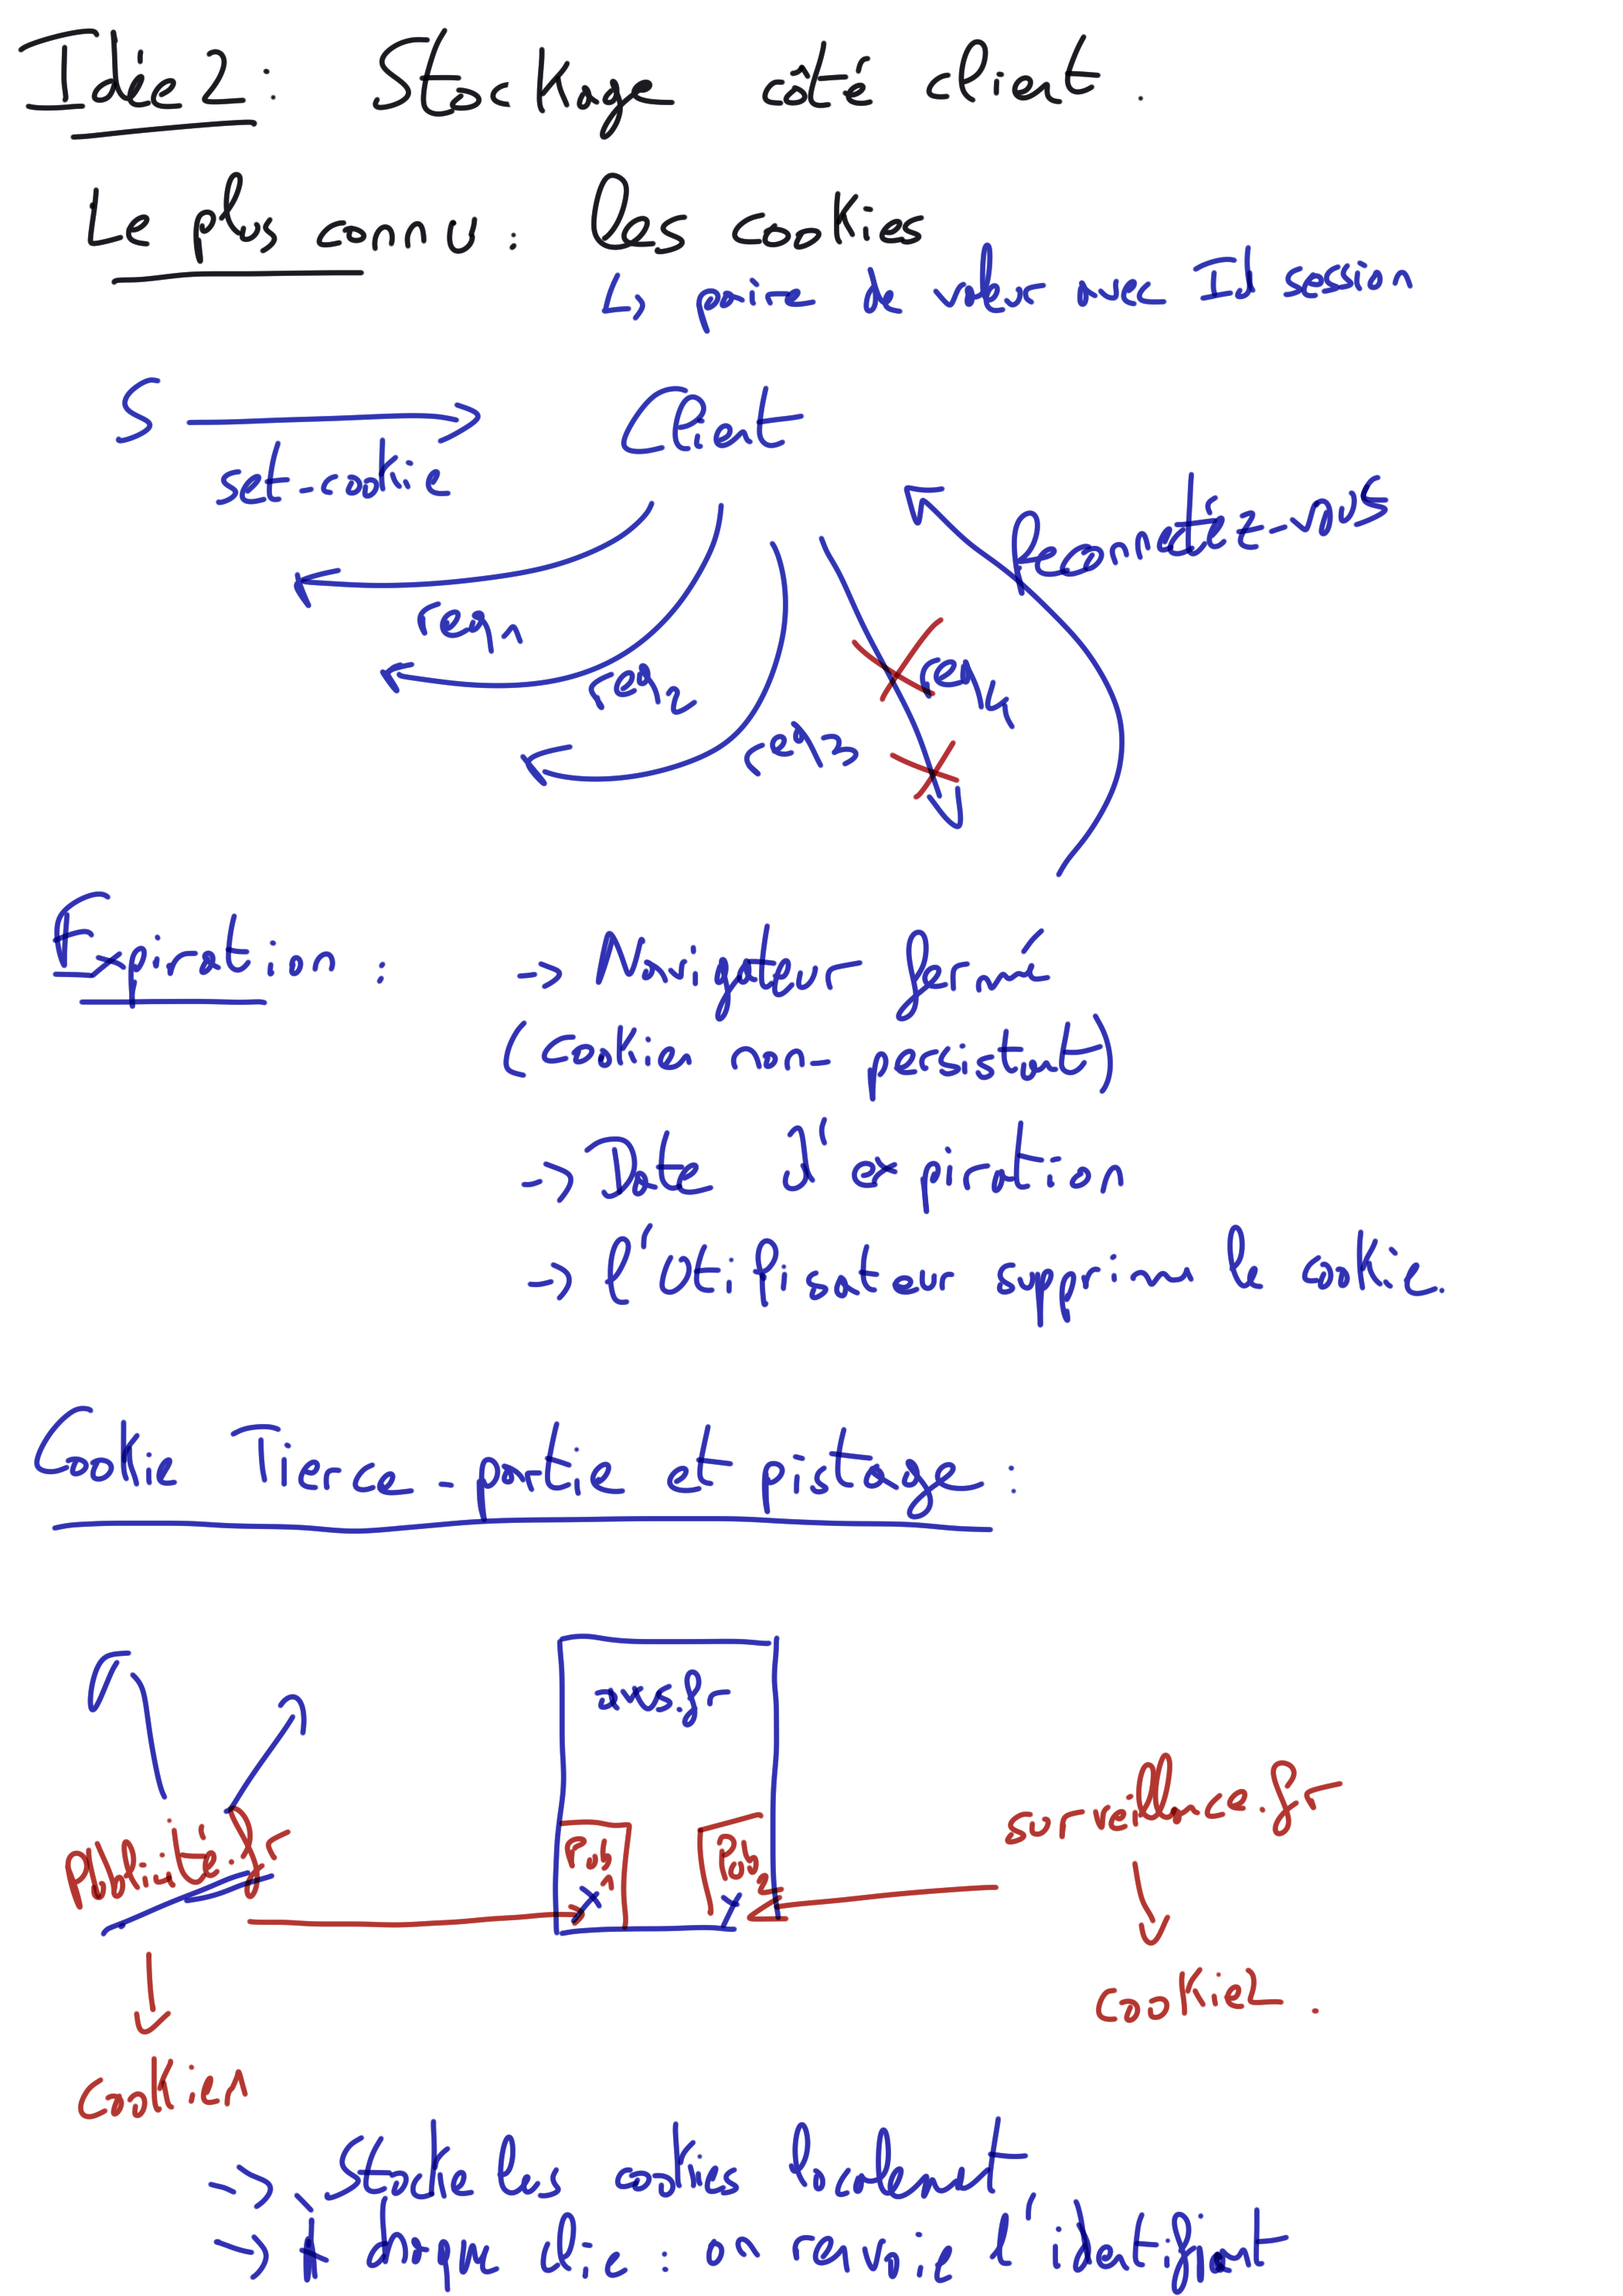 Idée 2 : Stockage côté client.
Le plus connu : les cookies
↳ paire de valeur avec Id session
S → Client
set-cookie
Reconnectez-vous
req1
req2
req3
req4
Expiration : → Navigateur fermé
(Cookie non-persistant)
→ Date d'expiration
→ l'utilisateur supprime le cookie.
Cookie Tierce-partie et pistage :
news.fr
publicité.fr
Pub1
Pub2
surveillance.fr
cookie1
cookie2.
→ Stocke les cookies localement
→ À chaque clic : on renvoie l'identifiant